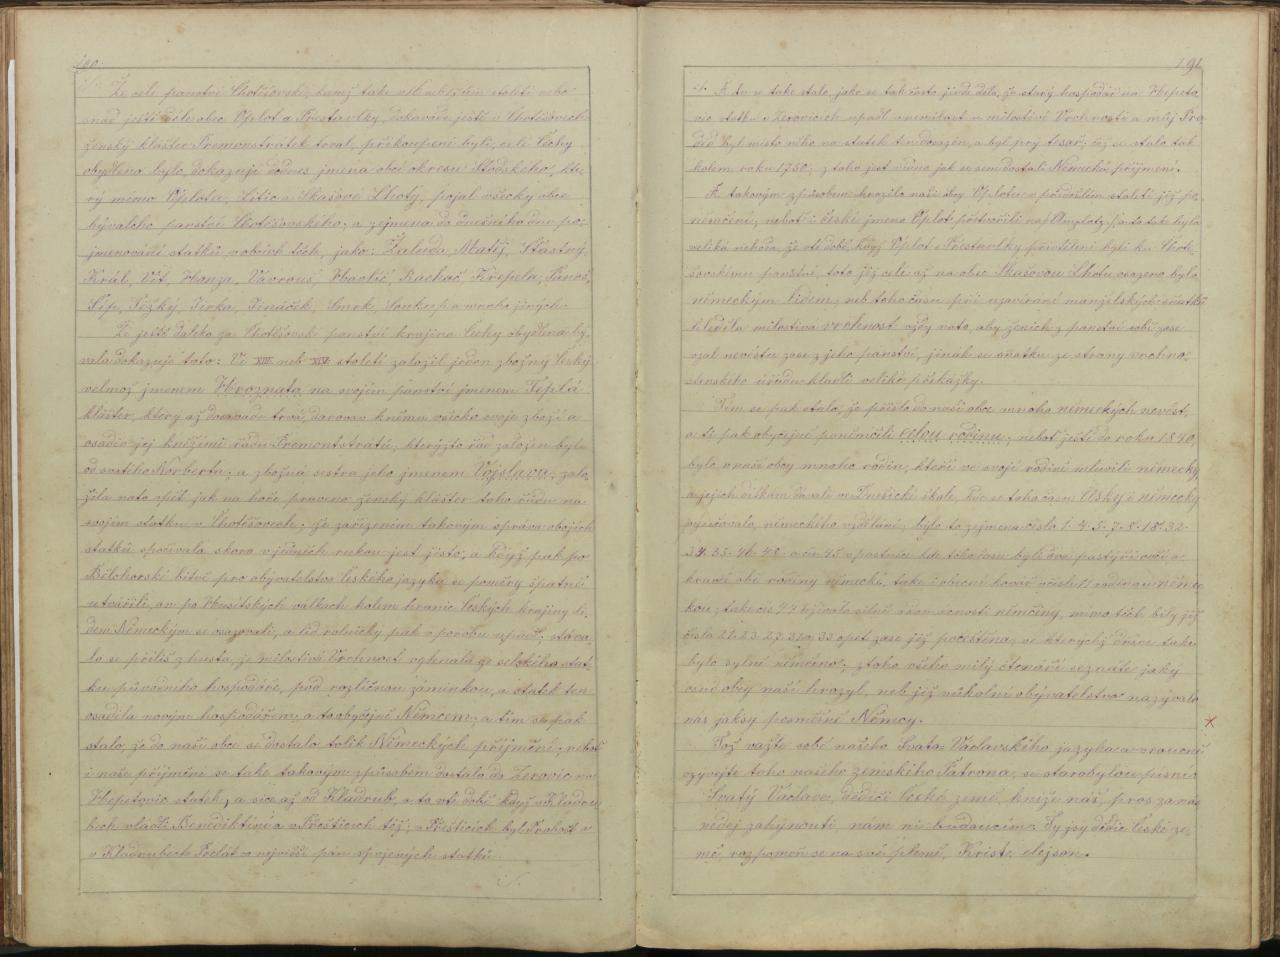 190.
Že celé panství Chotěšovské, kamž také
snad ještě déle obec Oplot a Přestavlky, dokavade ještě v Chotěšovech
ženský klášter Premonstrátek trval, přikoupené byli; celé Čechy
obydleno bylo, dokazují dodnes jmena obcí okresu Stodského, kte-
rý mimo Oplota, Lític a Skašově Lhoty, pojal všecky obce
bývalého panství Chotěšovského; a zejmena do dnešního dne po-
jmenování statků v obcích těch, jako: Žaluda, Matěj, Šťastný,
Král, Vít, Honza, Vavrouš, Havlíč, Rachač, Křepela, Pánoš,
Síp, Těžký, Jirka, Jináček, Smrk, Soukup a mnoho jiných.
Že ještě daleko za Chotěšovské panství krajina Čechy obydlena bý-
vala dokazuje toto: Ve XIII neb XIV století založil jeden zbožný český
velmož jmenem Hroznata na svojem panství jmenem Teplá
klášter, který až dosavade trvá, daroval k němu všecko svoje zboží a
osadil jej knězími řádu Premonstrátů, kterýžto řád založen byl
od svatého Norberta; a zbožná sestra jeho jmenem Vojslava, zalo-
žila nato opět jak na hoře praveno ženský klášter toho řádu na
svojem statku v Chotěšovech; že zařízením takovým správa obojích
statků spočívala skoro v jedněch rukou jest jisto, a když pak po
Bělohorské bitvě pro obyvatelstvo českého jazyka se poměry špatně
utvářili, an po Husitských válkách kolem hranic českých krajiny li-
dem Německým se osazovali, a lid rolnický pak v porobu upadl; stáva-
lo se příliš zhusta, že milostivá Vrchnost vyhnala ze selského stat-
ku původního hospodáře, pod rozličnou záminkou, a statek ten
osadila novým hospodářem, a to obyčejně Němcem; a tím se pak
stalo, že do naší obce se dostalo tolik Německých příjmění; neboť
i naše příjmění se také takovým způsobem dostalo do Žerovic na
Hepetovic statek, a sice až od Kladrub, a to v té době když v Kladru-
bech vládli Benediktini a v Přešticích též; v Přešticích byl Probošt a
v Kladrubech Prelát co nejvišší pán spojených statků.
./.
191
./. A tu se také stalo, jako se tak často jinde dělo, že starý hospodář na Hepeto-
vic statku v Žerovicích upadl v nemilost u milostivé Vrchnosti a můj Pra-
děd byl místo něho na statek ten dosazen, a byl prý tesař; což se stalo tak
kolem roku 1750; z toho jest vidno jak se sem dostali Německá příjmení.
A takovým způsobem hrozilo naší obcy Oplotu v předešlém století již po-
němčení, neboť i české jmeno Oplot přetvořili na Amplatz, a to také byla
veliká nehoda, že v té době když Oplot a Přestavlky přivtělení byli ku Chotě-
šovskému panství, toto již celé až na obec Skašovou Lhotu osazeno bylo
německým lidem; neb toho času při uzavírání manželských sňatků
hleděla milostivá vrchnost vždy na to, aby ženich z panství vzal si zase
vzal nevěstu zase z jeho panství, jinák se sňatku ze strany vrchno-
stenského úřadu kladli veliké překážky.
Tím se pak stalo, že přišlo do naší obce mnoho německých nevěst,
a ti pak obyčejně poněmčili celou rodinu; neboť ještě do roku 1840,
bylo v naší obcy mnoho rodin, kteří ve svojí rodině mluvili německy,
a jejich dítkám dávali ve Dnešické škole, kde se toho času česky i německy
vyučovalo, německého vzdělání; bylo to zejmena číslo 1. 4. 5. 7. 8. 18. 32.
34. 35. 46. 48. a čís. 45 v pastoušce kde toho času byli dva pastýři ovčí a
kraví obě rodiny německé, také i obecní kovář v čísle 11 rodinou němec-
kou; také čís. 44 užívalo silně v domácnosti němčiny, mimo těch byly již
čísla 21. 23. 27. 31 a 33 opět zase již počeštěna, ve kterychž dříve také
bylo sylně němčeno; z toho všeho milý čtenáři seznáte jaký
osud obcy naší hrozyl, neb již v okolní obyvatelstvo nazývalo
nás jaksy posměšně Němcy.
Tož važte sobě našeho Svato-Václavského jazyka a vroucně
vzývejte toho našeho zemského Patrona, se starobylou písní:
Svatý Václave, dědici české země, kníže náš, pros za nás
nedej zahynouti nám ni budoucím; Ty jsy dědic české ze-
mě, rozpomeň se na své plémě, Kriste elejson.